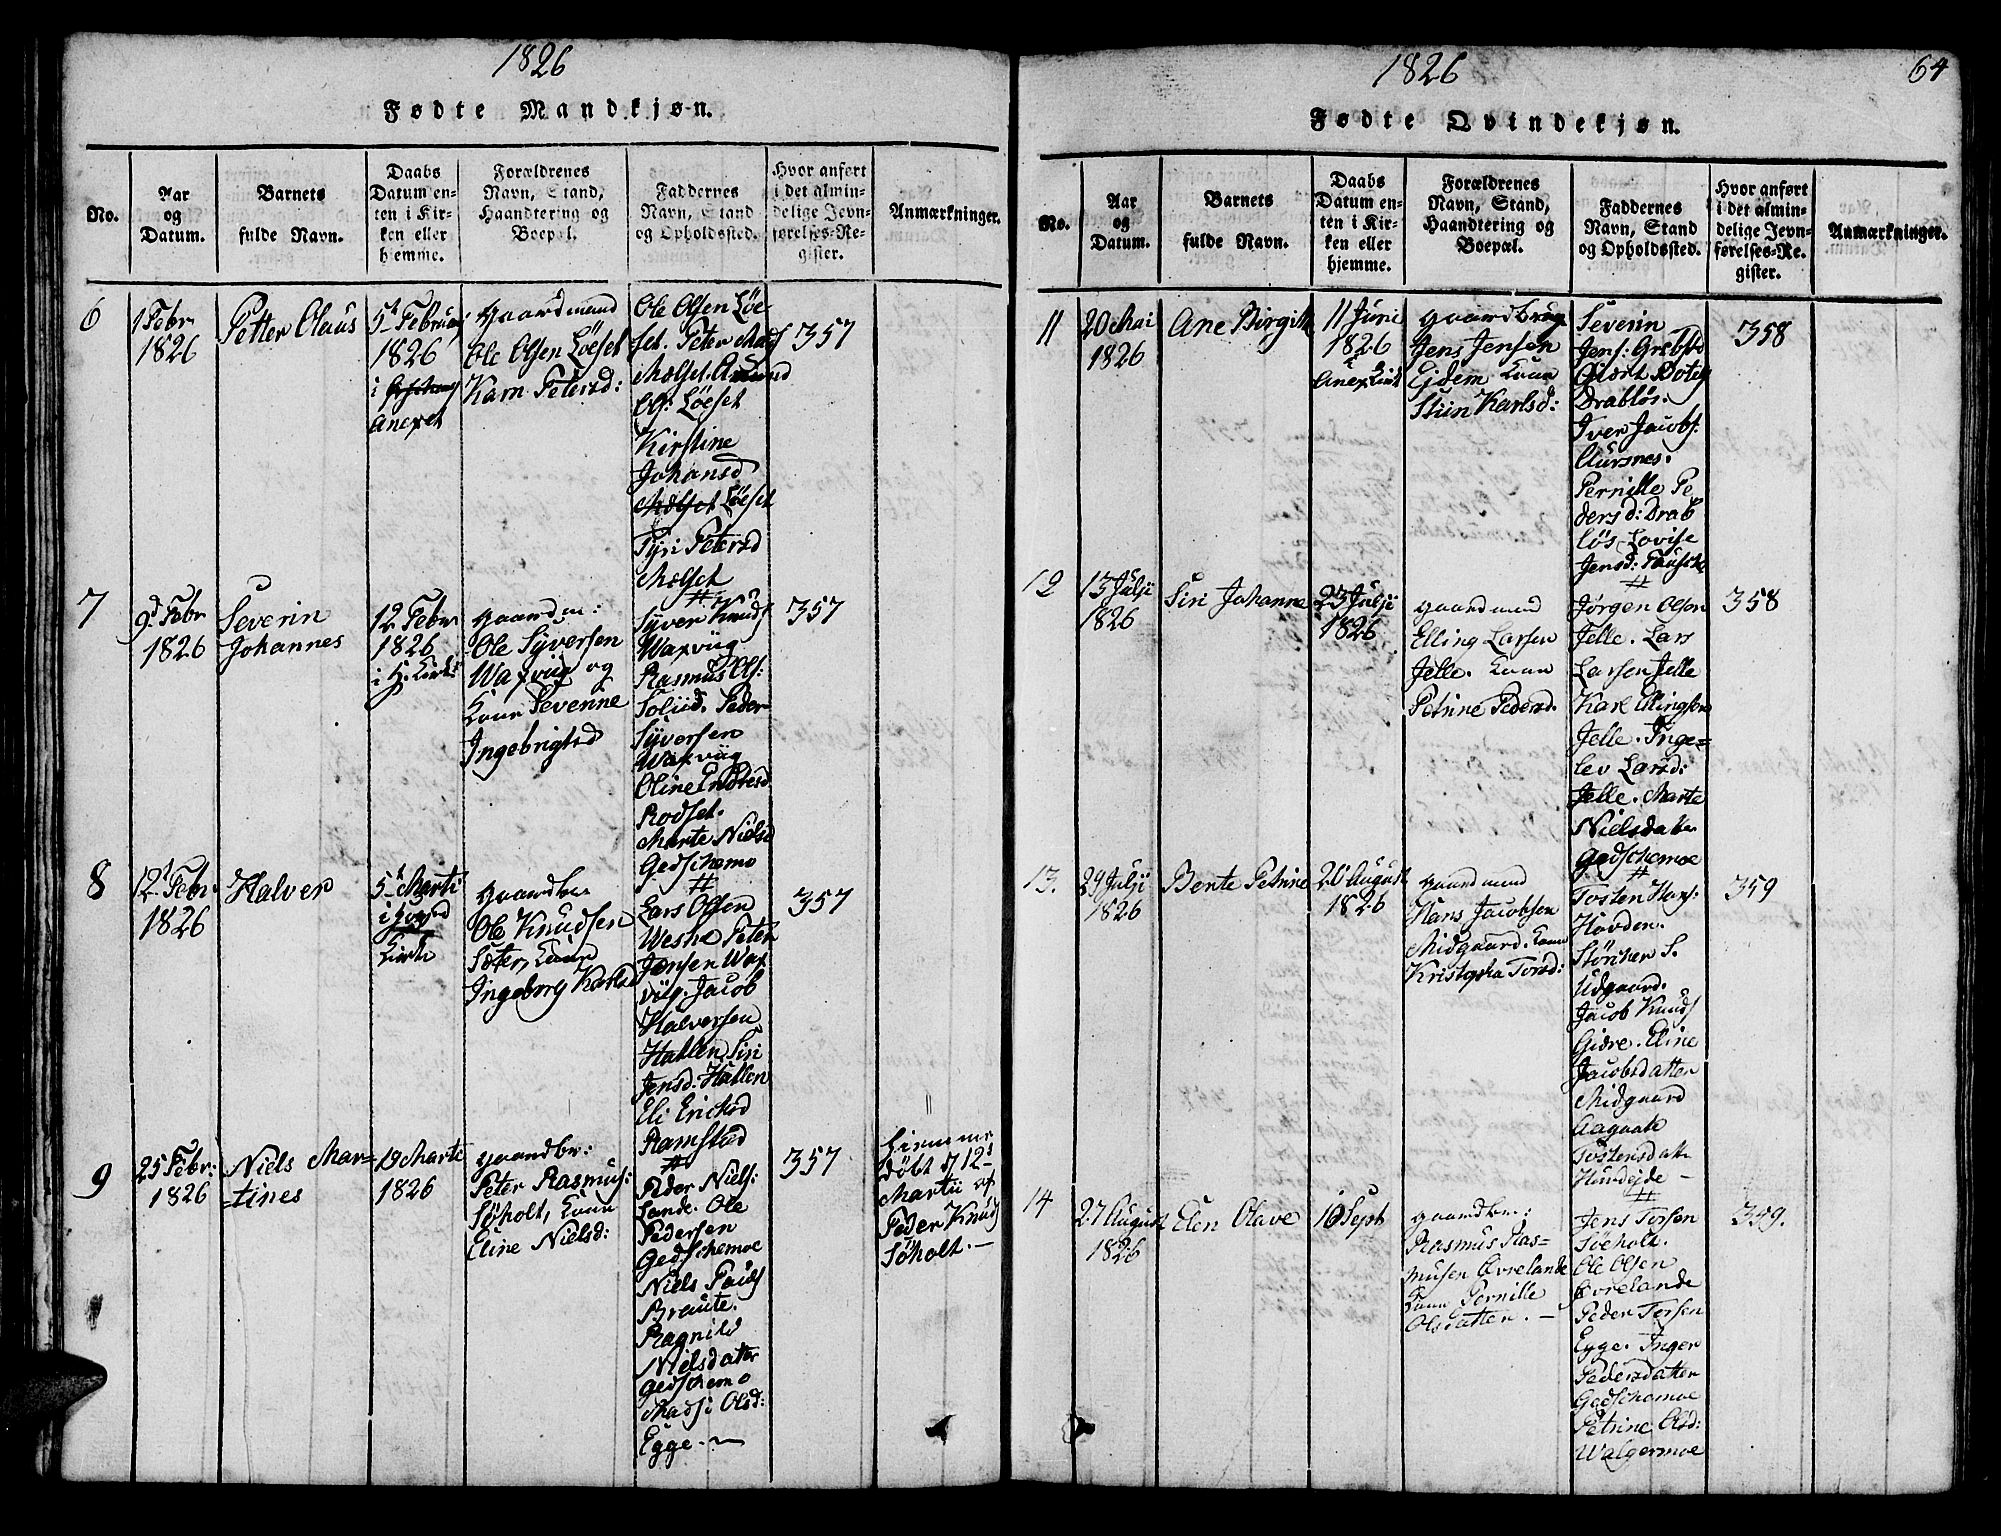 1826
Fødte Mandkjøn.
No.
Aar
og
Datum.
Barnets
fulde Navn.
Daabs
Datum en-
ten i Kir-
ken eller
hjemme.
Forældrenes
Navn, Stand,
Haandtering og
Boepæl.
Faddernes
Navn, Stand
og Opholdssted.
Hvor anført
i det almin-
delige Jevn-
førelses-Re-
gister.
Anmærkninger.
6
1 Febr
1826
Petter Olaus
5t Februarj
1826
i
Anexet
gaardmand
Ole Olsen Löeset
Karn Petersd:
Ole Olsen Löe-
set. Peter Mads
Molset. Amund
Ols: Löeset
Kirstine
Johansd
Molset Löeset
Tyri Petersd
Molset
357
7
9d Febr
1826
Severin
Johannes
12 Febr
1826
i H. Kirke
gaardm:
Ole Syversen
Waxviig og
Kone Severine
Ingebrigtsd
Syver Knuds
Waxviig
Rasmus Ols:
Soliid. Peder
Syversen
Waxviig
Oline Endresd
Rodset.
Marte Nielsd
Gedschemo
357
8
12t Febr
1826
Halver
5t Marti
i
Kirke
gaardbr.
Ole Knudsen
Sæter, Kone
Ingeborg Karlsd
Lars Olsen
Weshe Peter
Jensen Wax
viig. Jacob
Halversen
Hatlen Siri
Jensd: Hatlen
Eli Ericksd
Ramstad
357
9
25 Febr:
1826
Niels Mar=
=tines
19 Marti
1826
gaardbr:
Peter Rasmus:
Söholt, Kone
Eline Nielsd:
Peder Niels:
Lande. Ole
Pedersen
Gedschemoe
Niels Pauls
Braute.
Ragnild
Nielsdatter
Gedschemo
Madsi Olsd:
Egge.
357
hiemme
døbt d 12t
Martii af
Peder Knuds
Söholt. —
1826
64
Fødte Qvindekjøn.
No.
Aar
og
Datum.
Barnets
fulde Navn.
Daabs
Datum en-
ten i Kir-
ken eller
hjemme.
Forældrenes
Navn, Stand,
Haandtering og
Boepæl.
Faddernes
Navn, Stand
og Opholdssted.
Hvor anført
i det almin-
delige Jevn-
førelses-Re-
gister.
Anmærkninger.
11
20 Mai
1826
Ane Birgitte
11 Juni
1826
Anex Kirke
gaardbrug
Jens Jensen
Eidem Kone
Stiin Karlsd:
Severin
Jens: Grebstad
Drabløs.
Iver Jacobs.
Aursnes.
Pernille Pe
dersd: Drab
løs. Lovise
Jensd: Fauske
358
12
13 Julji
1826
Siri Johanne
23 Julji
1826
gaardmand
Elling Larsen
Jelle. Kone
Petrine Pedersd.
Jørgen Olsen
Jelle. Lars
Larsen Jelle
Karl Ellingsen
Jelle. Inge=
lev Larsd:
Jelle. Marte
Nielsdatr
Gedschemoe
358
13.
29 Julji
1826
Bente Petrine
20 August
1826
gaardmand
Hans Jacobsen
Midgaard. Kone
Kristopha Torsd:
Tosten Hans:
Hovden.
Støriser S.
Udgaard.
Jacob Knuds
Giære. Eline
Jacobsdatter
Midgaard
Aagaate
Tostensdatr
Hundejde —
359
14
27 August
1826
Elen Olave
10 Sept
gaardbr:
Rasmus Ras=
musen Øvrelande
Kone Pernille
Olsdatter. —
Jens Torsen
Söeholt.
Ole Olsen
Øvrelande
Peder Torsen
Egge. Inger
Pedersdatter
Gedschemoe
Petrine Olsd:
Walgermoe
359.